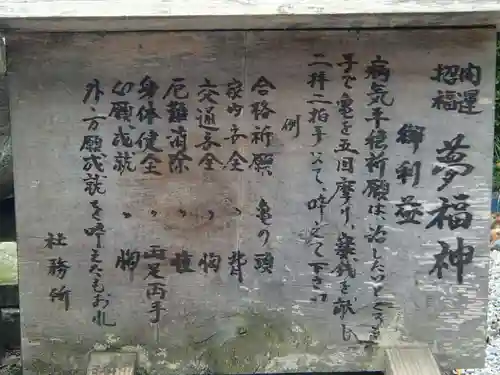 開運
招福
夢福神
御利益
病気平癒祈願は治したいところを
手で亀を五回摩り、賽銭を献じ
二拝二拍手して、唱えて下さい
例
合格祈願 亀の頭
家内安全 〃 背
交通安全 〃 胸
厄難消除 〃 首
身体健全 〃 両足両手
心願成就 〃 胸
外一万願成就を唱えたもお礼
社務所